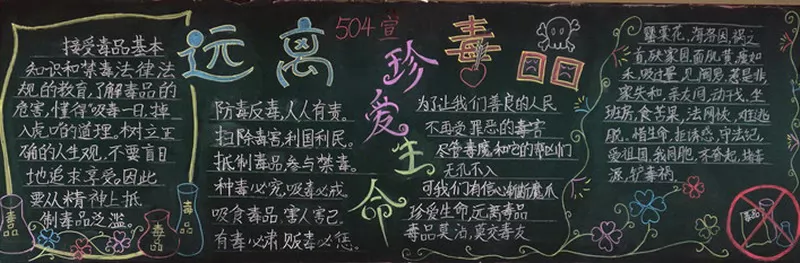 远离毒
504宣
珍爱生命
接受毒品基本
知识和禁毒法律法
规的教育,了解毒品的
危害,懂得"吸毒一日,掉
入虎口"的道理。树立正
确的人生观,不要盲目
地追求享受,因此
要从精神上抵
制毒品泛滥。
毒品
毒品
防毒反毒,人人有责。
扫除毒害,利国利民。
抵制毒品,参与禁毒。
种毒必究,吸毒必戒
吸食毒品,害人害己
有毒必肃,贩毒必惩。
为了让我们善良的人民
不再受罪恶的毒害
尽管毒魔和它的帮凶们
无孔不入
可我们有信心斩断魔爪
珍爱生命,远离毒品
毒品莫沾,莫交毒友
罂粟花,海洛因,祸之
首,败家园,面肌黄,瘦如
禾,吸成量,见阎
家失和,亲友间,动干戈,坐
班房,食苦果,法网恢,难逃
脱。惜生命,拒诱惑,守法纪,
爱祖国,我同胞,齐奋起,堵毒
源,铲毒祸。
毒品